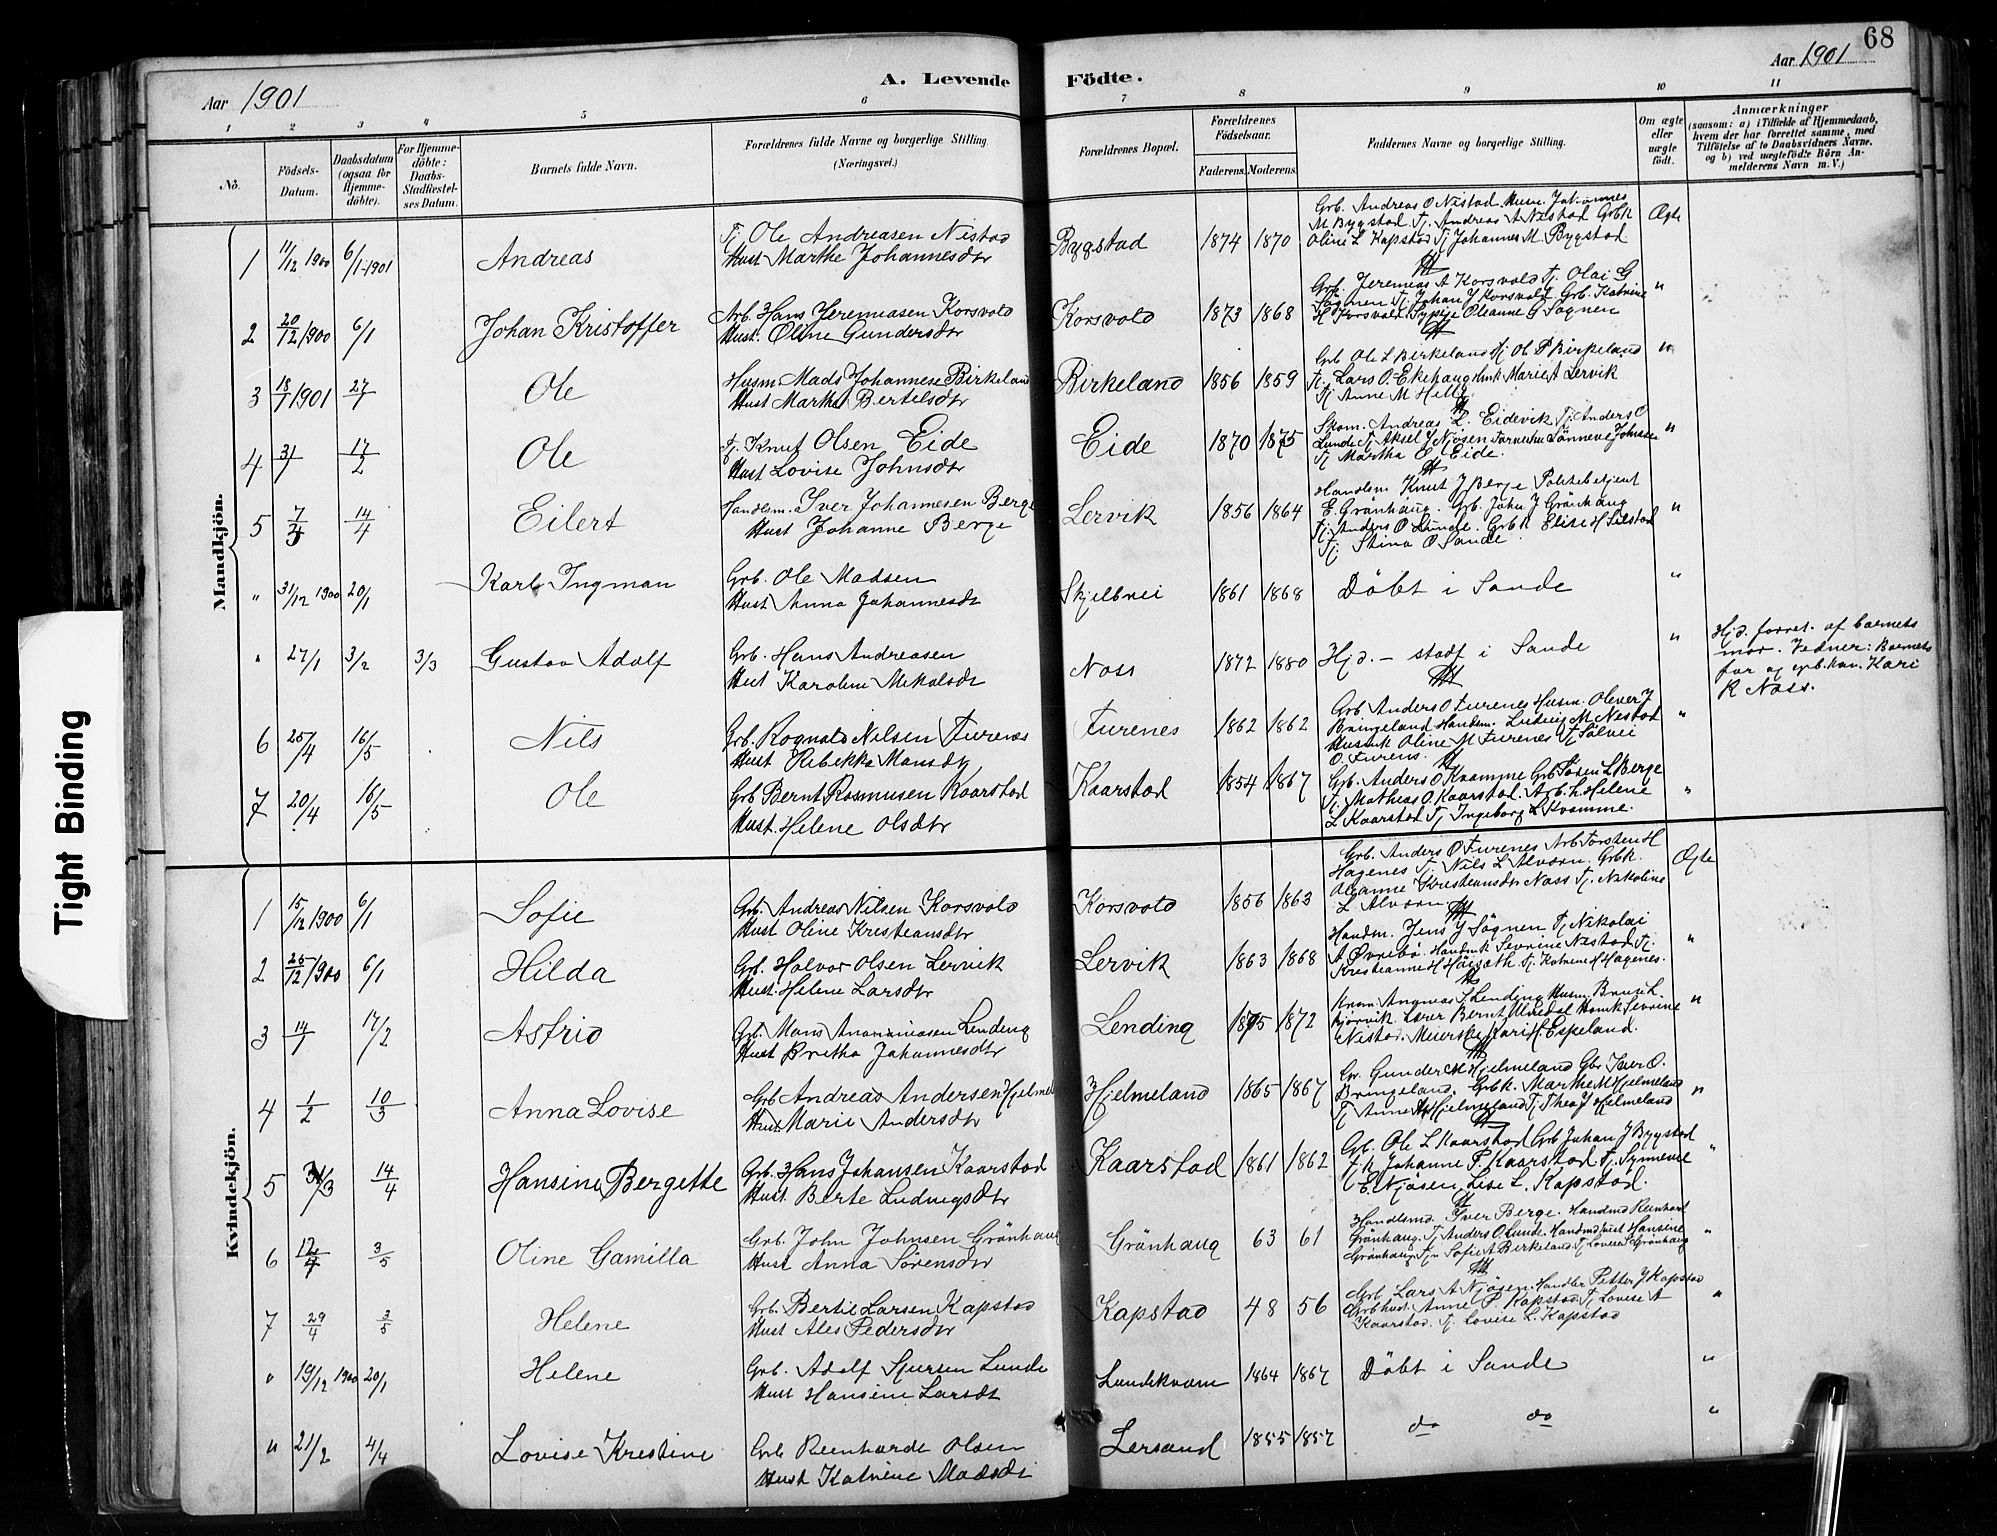 68
Aar 1901
A. Levende Födte.
Aar 1901
1 2 3 4 5 6 7 8 9 10 11
No.
Födsels-Datum.
Daabsdatum (ogsaa för Hjemme-döbte).
For Hjemme-döbte: Daabs-Stadfæstel-ses Datum.
Barnets fulde Navn.
Forældrenes fulde Navne og borgerlige Stilling.
(Næringsvei.)
Forældrenes Bopæl.
Forældrenes Födselsaar.
Faderens. Moderens.
Faddernes Navne og borgerlige Stilling.
Om ægte eller uægte födt.
Anmærkninger
(saasom: a) i Tilfælde af Hjemmedaab, hvem der har forrettet samme, med Tilföielse af to Daabsvidners Navne. og b) ved uægtefödte Börn An-melderens Navn m. V.)
Mandkjön.
1 11/12 1900 6/1-1901 Andreas Tj. Ole Andreasen Nistad
Hust Marthe Johannesdtr
Bygstad 1874 1870
Grb. Andreas O Nistad. Husm. Johannes
M Bygstad Tj. Andreas A Nistad Grbk
Oline L Kapstad Tj Johannes M. Bygstad
Ægte
2 20/12 1900 6/1 Johan Kristoffer Arb. Hans Jeremiasen Korsvold
Hust. Oline Gundersdtr
Korsvold 1873 1868
Grb. Jeremias A Korsvold Tj. Olai G
Sögnen Tj. Johan J Korsvold Grb. Katrine
H Korsvold Sypige Oleanne G Sögnen
"
3 18/1 1901 27/1 Ole Husm. Mads Johannese Birkeland
Hust Marthe Bertelsdtr
Birkeland 1856 1859
Grb Ole L Birkeland Tj Ole P Birkeland
Tj. Lars O. Ekehaug Marie A Lervik
Tj Anne M Hille
"
4 3/1 17/2 Ole Tj. Knut Olsen Eide
Hust Lovise Johnsdtr
Eide 1870 1875
Skom. Andreas L. Eidevik Tj. Anders O
Lunde Tj Aksel J Njösen Sönneve Johnsen
Tj Martha O. Eide.
"
5 7/3 14/4 Eilert Handlsm. Iver Johannesen Berge
Hust Johanne Berge
Lervik 1856 1864
Handlsm Knut J Berge Politibetjent
E. Grönhaug. Grb. John J Grönhaug
Tj. Anders O Lunde. Grbk Elise H
Tj. Stina O Sande
"
" 31/12 1900 20/1 Karl Ingman Grb. Ole Madsen
Hust Anna Johannesdt
Skjelbrei 1861 1868 Döbt i Sande "
" 27/1 3/2 3/3 Gustav Adolf Grb. Hans Andreasen
Hust Karoline Mikalsdt
Nass 1872 1880 Hjd. - stadf i Sande "
Hjd. forret. af barnets
mor. Vidner: Barnets
far og Kari
R Nass.
6 25/4 16/5 Nils Grb. Rognald Nilsen Furenes
Hust Rebekka Mons
Furenes 1862 1862
Grb Anders O Furenes Husm. Oliver J
Bringeland Handsm. Ludvig M Nestad
Oline M Furenes Tj Sölvei
O. Furenes.
"
7 20/4 16/5 Ole Grb Bernt Rasmusen Kaarstad
Hust. Helene Olsdtr
Kaarstad 1854 1867
Grb. Anders O Kvamme Grb L Berge
Tj. Mathias O. Kaarstad. Arb. h. Helene
L Kaarstad Tj Ingeborg L Kvamme.
"
Kvindekjön.
1 15/12 1900 6/1 Sofie Grb. Andreas Nilsen Korsvold
Hust Oline Kristiansdtr
Korsvold 1856 1863
Grb. Anders O Furenes Arb Torsten H
Hagenes Tj. Nils L Alvarn. Grbk.
Oleanne Kristiansdtr Nass Tj. Nikoline
L Alvarn
Ægte
2 25/12 1900 6/1 Hilda Grb. Halvor Olsen Lervik
Hust. Helene Larsdtr
Lervik 1863 1868
Handm. Jens J Sögnen Tj Nikolai
A Övrebö. Sevrine Nestad Tj.
Kristianne H Tj. Katrine H Hagenes.
"
3 14/1 17/2 Astrid Grb. Mons Lending
Hust Britha Johannesdtr
Lending 1875 1872
Lending Husm.
Lærer Bernt Sevrine
Nistad. Meierske Kari H. Espeland.
"
4 1/2 10/3 Anna Lovise Grb. Andreas Andersen Hjelmel
Hust Marie Andersdtr
Hjelmeland 1865 1867
Gr. Gunder M Hjelmeland Gbr Iver O.
Bringeland. Grbk. Marthe M Hjelmeland
Tj Anne Hjelmeland Tj. Thea J Hjelmeland
"
5 3/3 14/4 Hansine Bergette Grb. Hans Johansen Kaarstad
Hust Berte Ludvigsdtr
Kaarstad 1861 1862
Grb. Ole L Kaarstad Grb Johan J Bygstad
Johanne P. Kaarstad Tj. Synneve
E. Njösen, Lise L. Kapstad.
"
6 12/4 3/5 Oline Gamilla Grb. John Johnsen Grönhaug
Hust Anna Sörensdtr
Grönhaug 63 61
Handlsmd. Iver Berge. Handmd Reinhart
Grönhaug. Tj Anders O. Lunde Handmd hust Hansine
Grönhaug. Tj. Sofie A Birkeland Tj Lovise Grönhaug
"
7 29/4 3/5 Helene Grb. Bertil Larsen Kapstad
Hust Ales Pedersdtr
Kapstad 48 56
Grb. Lars A Njösen Handler Petter J Kapstad
Grb hust. Anne P. Kapstad Tj Lovise A
Kaarstad. Tj. Lovise L. Kapstad
"
" 19/12 1900 20/1 Helene Grb. Adolf Sjursen Lunde
Hust Hansine Larsdt
Lundekvam 1864 1867 Döbt i Sande "
" 21/2 4/4 Lovise Kristine Grb Reinhardt Olsen
Hust Katrine Madsdt
Lersund 1855 1857 do do "
Tight Binding